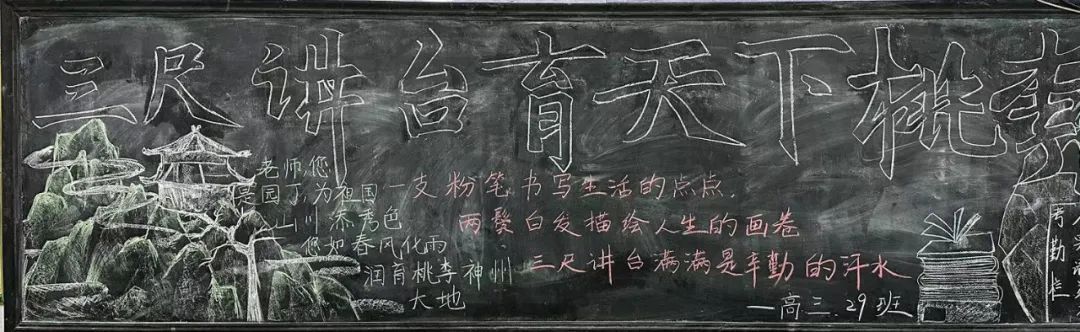 三尺讲台育天下桃
老师,您
是园丁,为祖国
山川添秀色
您如春风化雨
润育桃李神州
大地
一支粉笔书写生活的点点,
两鬓白发描绘人生的画卷
三尺讲台满满是辛勤的汗水
—高三.29班
考勤栏